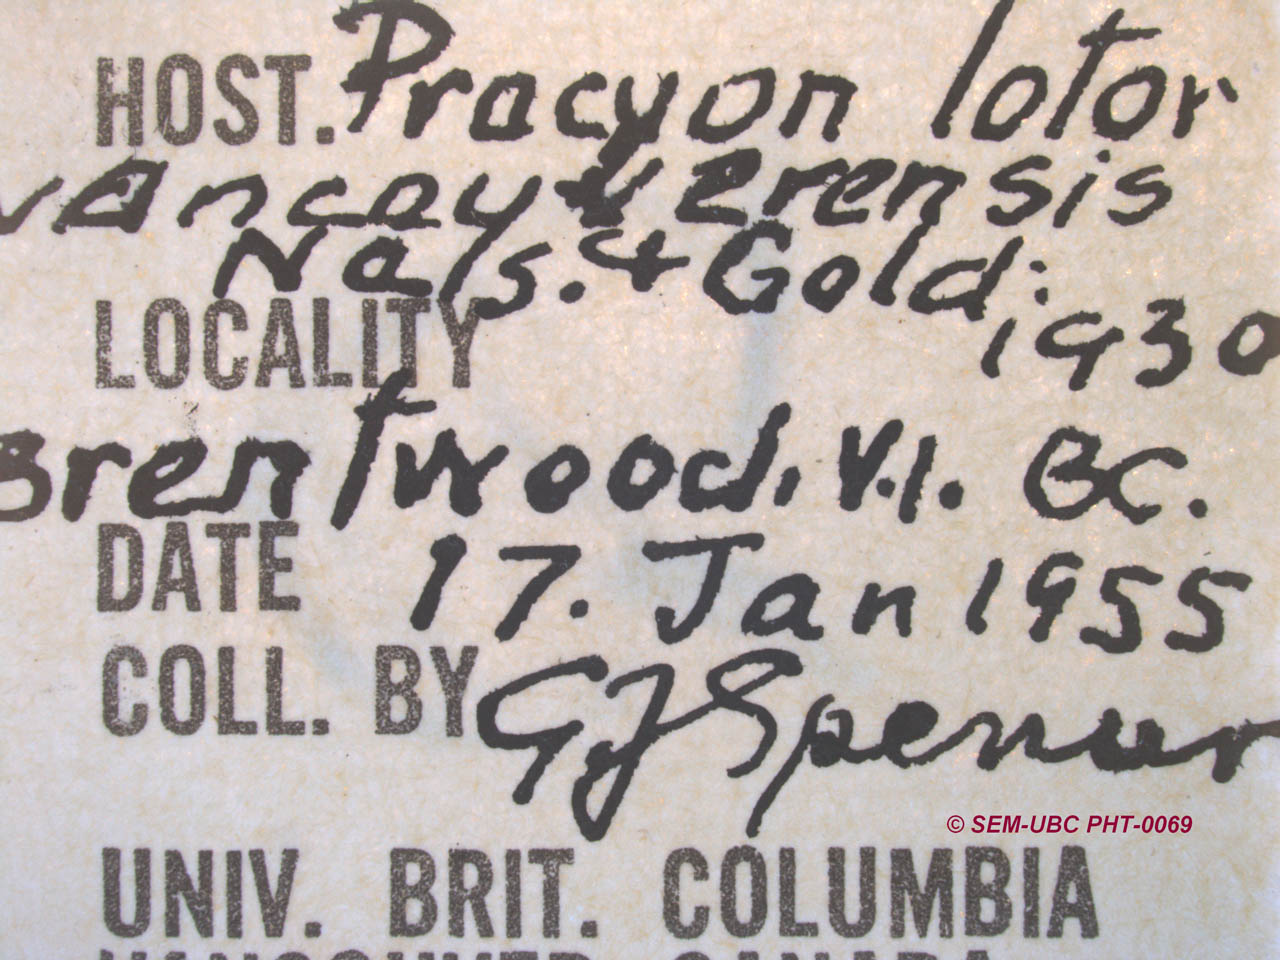 HOST. Pracyon lotor
vancouverensis
Nels. & Gold: 1930
LOCALITY
Brentwood, V.I. BC.
DATE 17. Jan 1955
COLL. BY GJSpencer
© SEM-UBC PHT-0069
UNIV. BRIT. COLUMBIA
VANCOUVER CANADA